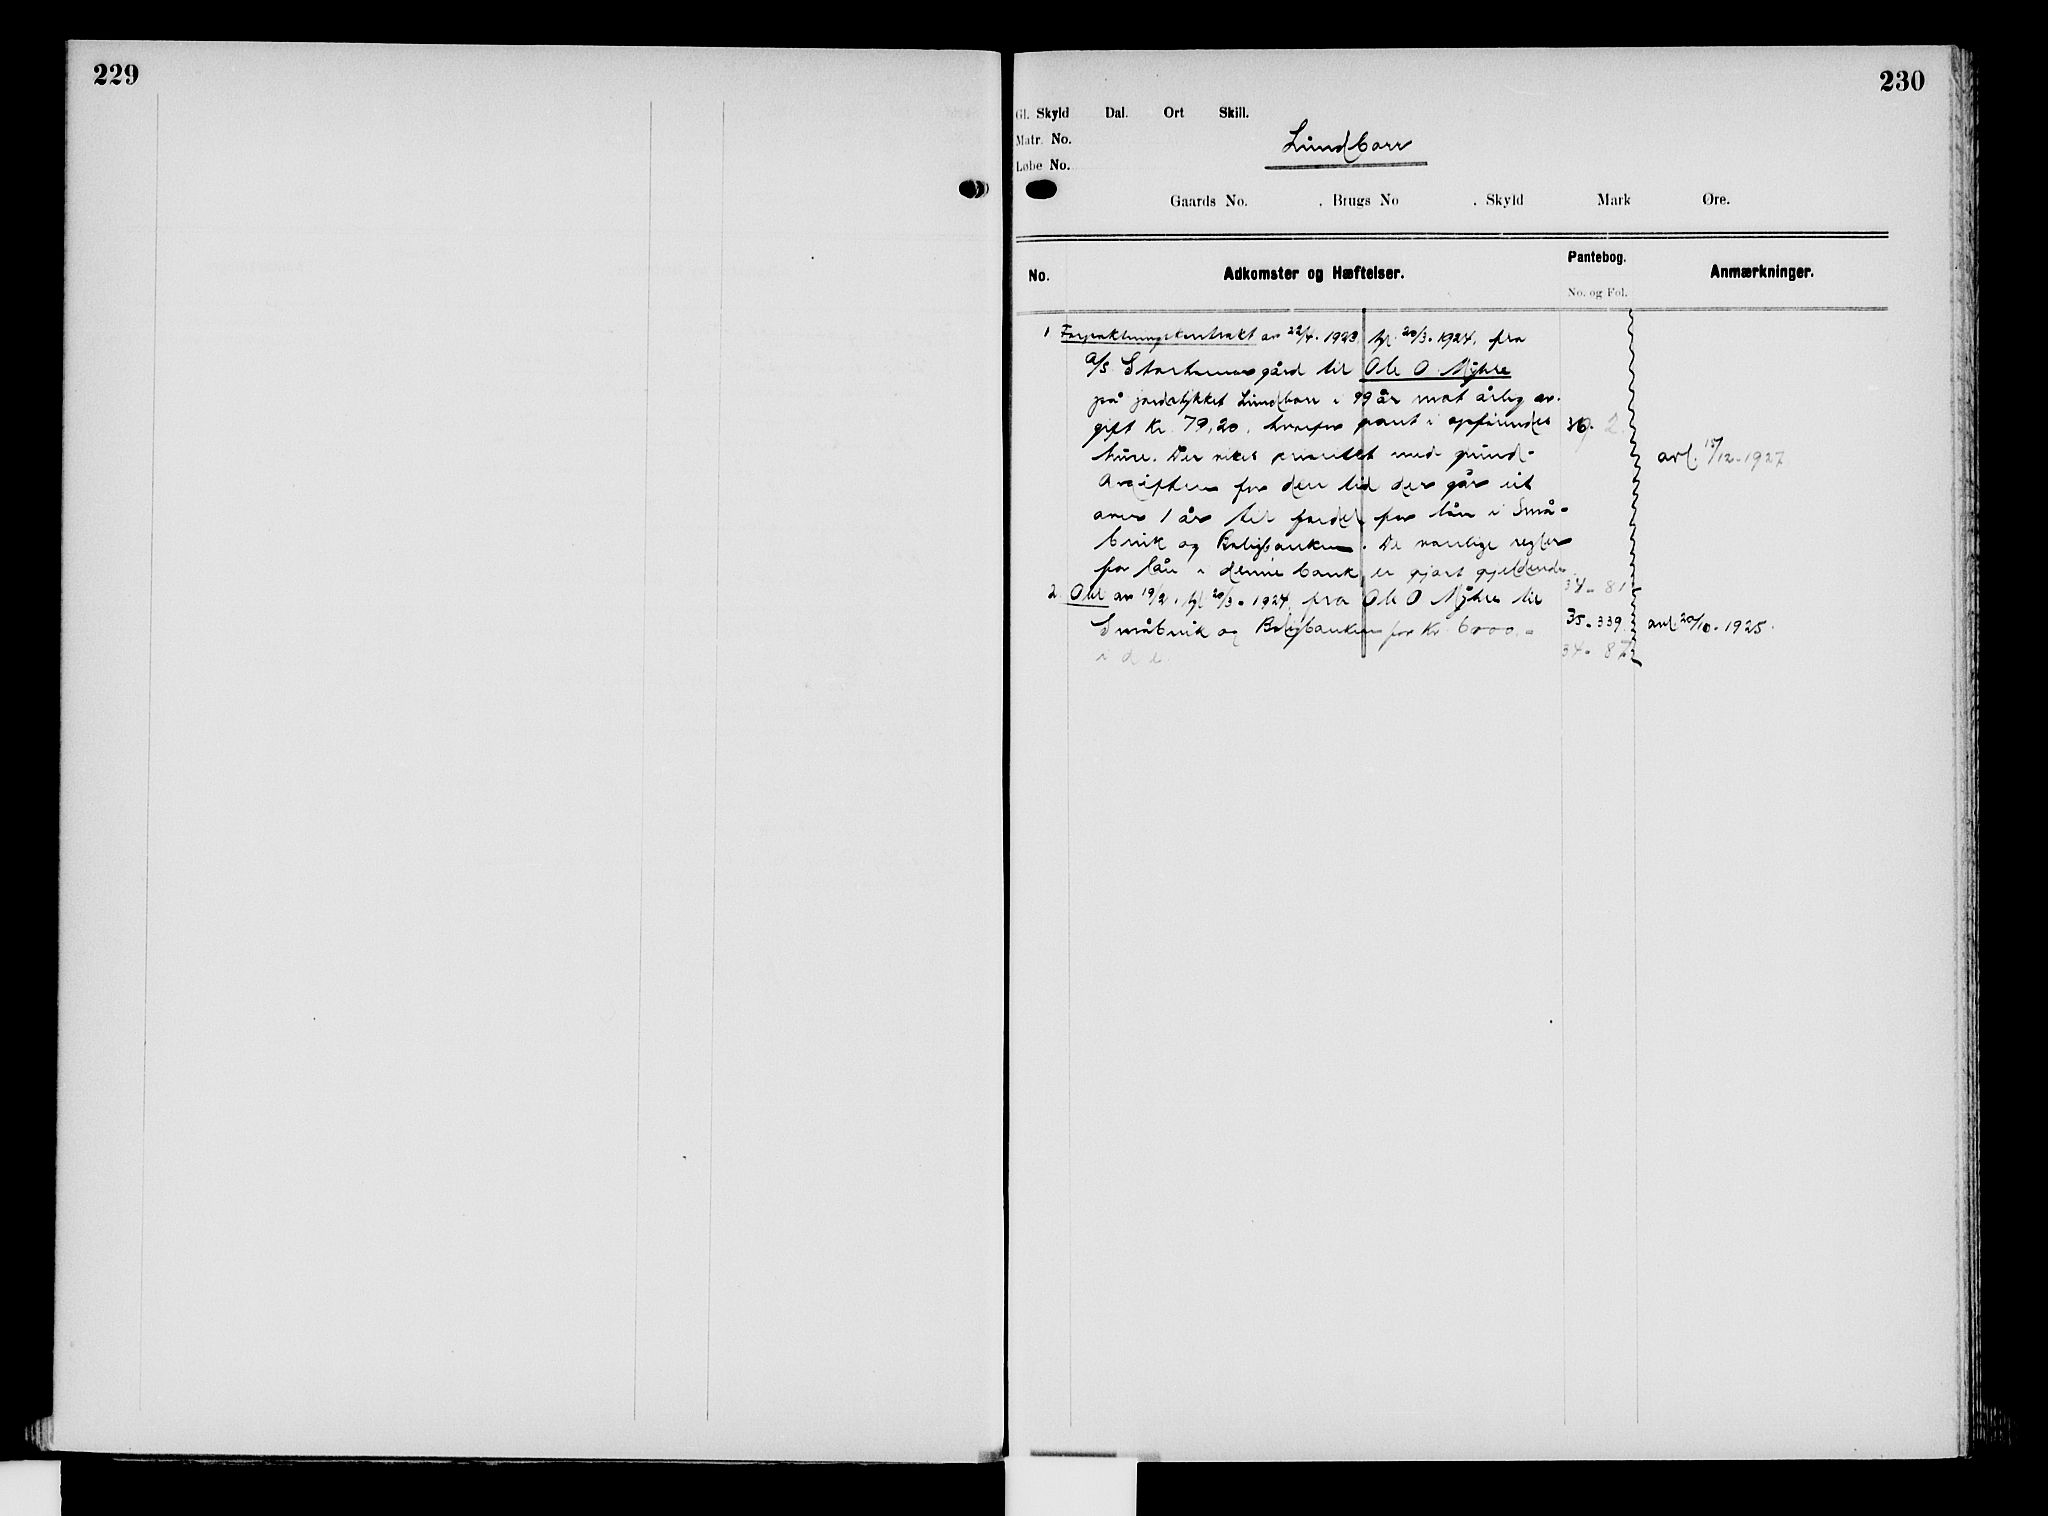 229
230
Gl. Skyld Dal. Ort Skill.
Matr. No.
Løbe No.
Lundborr
Gaards No. . Brugs No . Skyld Mark Øre.
No. Adkomster og Hæftelser. Pantebog. Anmærkninger.
No. og Fol.
1 Forpaktningskontrakt av 22/4. 1923, tgl. 20/3. 1924, fra
A/S Storhamargård til Ole O. Myhre
på jordstykket Lundborr i 99 år mot årlig av-
gift Kr. 79,20, hvorfor pant i opførendes
huse. Der vikes prioritet med grund-
avgiften for den tid der går ut
over 1 år til fordel for lån i Små-
bruk og Boligbanken. De vanlige regler
for lån i denne bank er gjort gjeldende.
36. 2.
avl. 15/12. 1927
34. 81
2. Obl av 19/2, tgl 20/3. 1924, fra Ole O Myhre til
Småbruk og Boligbanken for Kr. 6000.-
35. 339
avl 20/10. 1925.
34. 87